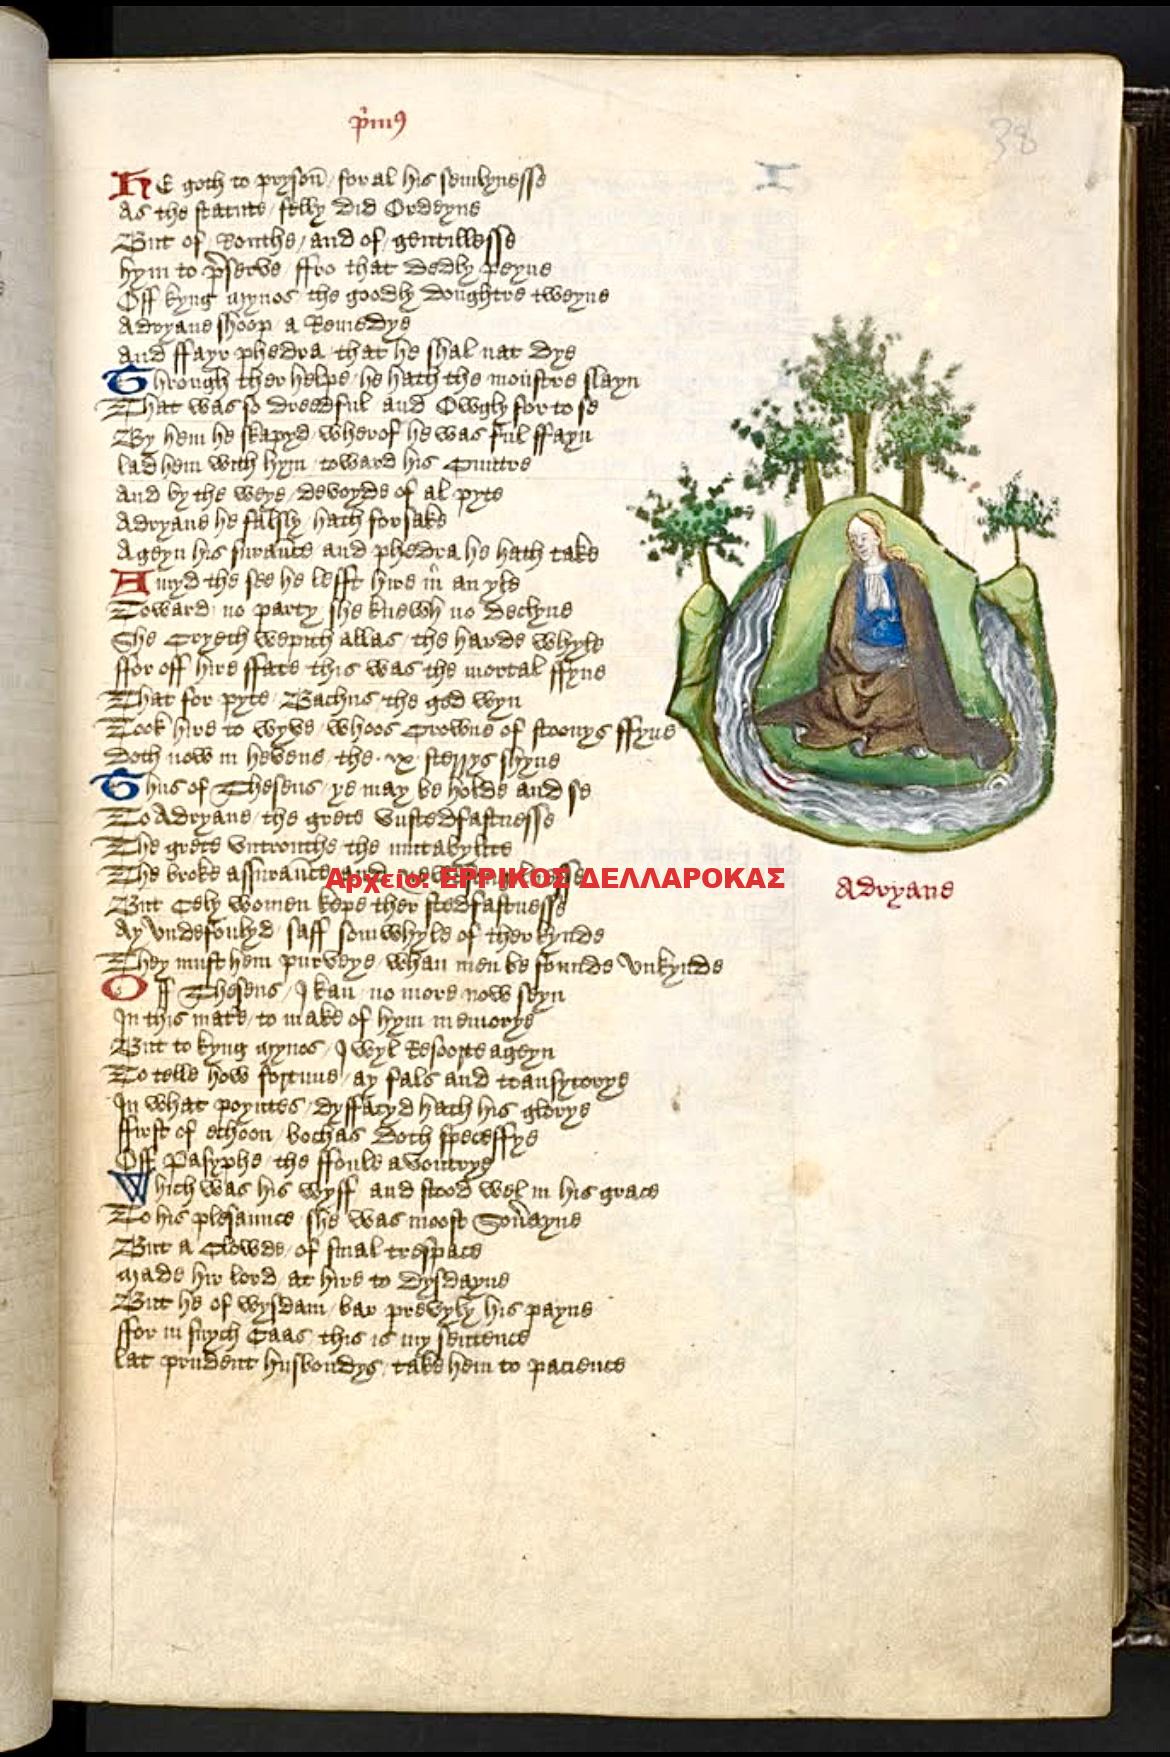 p͛mꝰ
38
HE goth to pryson̄ / for al his semlynesse
As the statute / felly did Ordeyne
But of / Routhe / and of / gentillesse
hym to p͛serve / ffro that dedly peyne
Off kyng mynos / the goodly doughtre tweyne
Adryane shoop / a Remedye
And ffayr phedra / that he shal nat dye
Through ther helpe / he hath the moūstre slayn
That was so dredful / and Owgly for to se
By hem he skapyd / wherof he was ful ffayn
lad hem with hym / toward his Cuntre
And by the weye / devoyde of al pyte
Adryane he falsly / hath forsake
Ageyn his surau̅ce and phedra he hath take
Amyd the see he lefft hire in an yle
Toward / no party / she knewh no declyne
She Cryeth wepith allas / the harde whyle
ffor off hire ffate / this was the mortal ffyne
That for pyte / Bachus / the god wyn
Took hire to wyve / whoos Crowne of stoonys ffyne
Doth now in hevene / the .ix. sterrys shyne
Thus of Theseus / ye may be holde and se
To Adryane / the grete Vnstedfastnesse
The grete Vntrouthe / the mutabylite
The broke assurau̅ce / and
Αρχείο: ΕΡΡΙΚΟΣ ΔΕΛΛΑΡΟΚΑΣ
Adryane
But Cely women kepe ther stedfastnesse
Ay Vndefoulyd / saff somwhyle of ther kynde
They must hem purveye / whan men be founde Vnkynde
Off Theseus / I kan no more now seyn
In this mate / to make of hym memorye
But to kyng mynos / I wyl Resoorte ageyn
To telle how fortune / ay fals and transytorye
In what poyntes / dyffacyd hath his glorye
ffirst of echoon / bochas doth speceffye
Off Pasyphe / the ffoule avoutrye
Which was his wyff / and stood wel in his grace
To his plesaunce / she was moost Sou͛ayne
But a Clowde / of smal trespace
made hir lord / at hire to dysdayne
But he of wysdam / bar prevyly his payne
ffor in suych Caas / this is my sentence
lat prudent husbondys / take hem to pacience